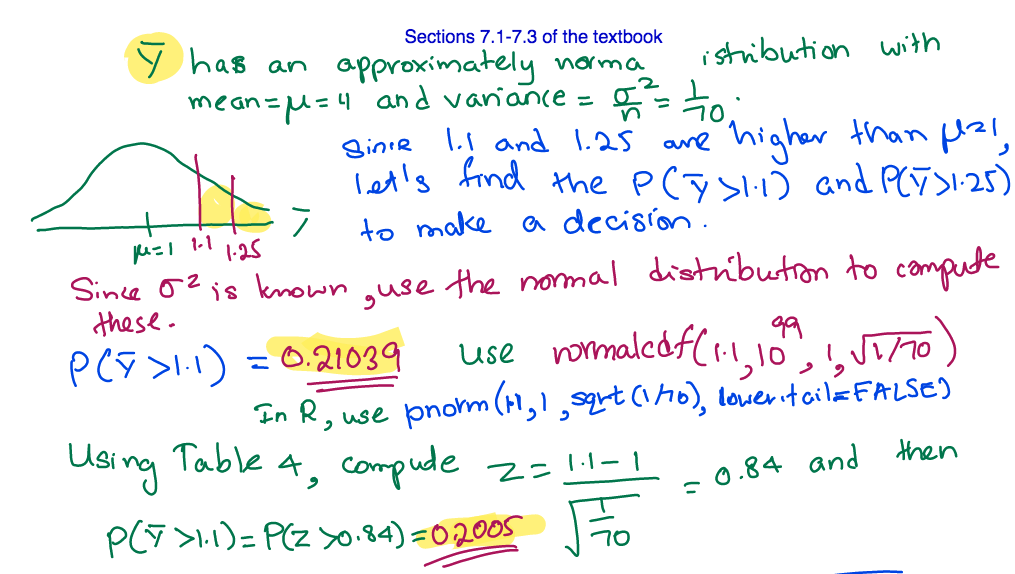 Sections 7.1-7.3 of the textbook
Ȳ has an approximately norma istribution with
mean = μ = 4 and variance = σ²/n = 1/70.
Since 1.1 and 1.25 are higher than μ=1,
let's find the P(Ȳ>1.1) and P(Ȳ>1.25)
to make a decision.
μ=1 1.1 1.25
Since σ² is known, use the normal distribution to compute
these.
P(Ȳ>1.1) = 0.21039 use normalcdf(1.1, 10^99, 1, √1/70)
In R, use pnorm(1.1, 1, sqrt(1/70), lower.tail=FALSE)
Using Table 4, compute z = (1.1-1)/√(1/70) = 0.84 and then
P(Ȳ>1.1) = P(Z>0.84) = 0.2005